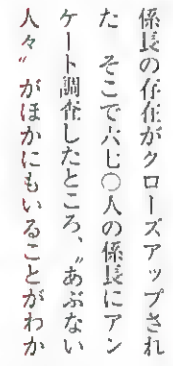 係長の存在がクローズアップされ
た　そこで六七〇人の係長にアン
ケート調査したところ、〝あぶない
人々〟がほかにもいることがわか